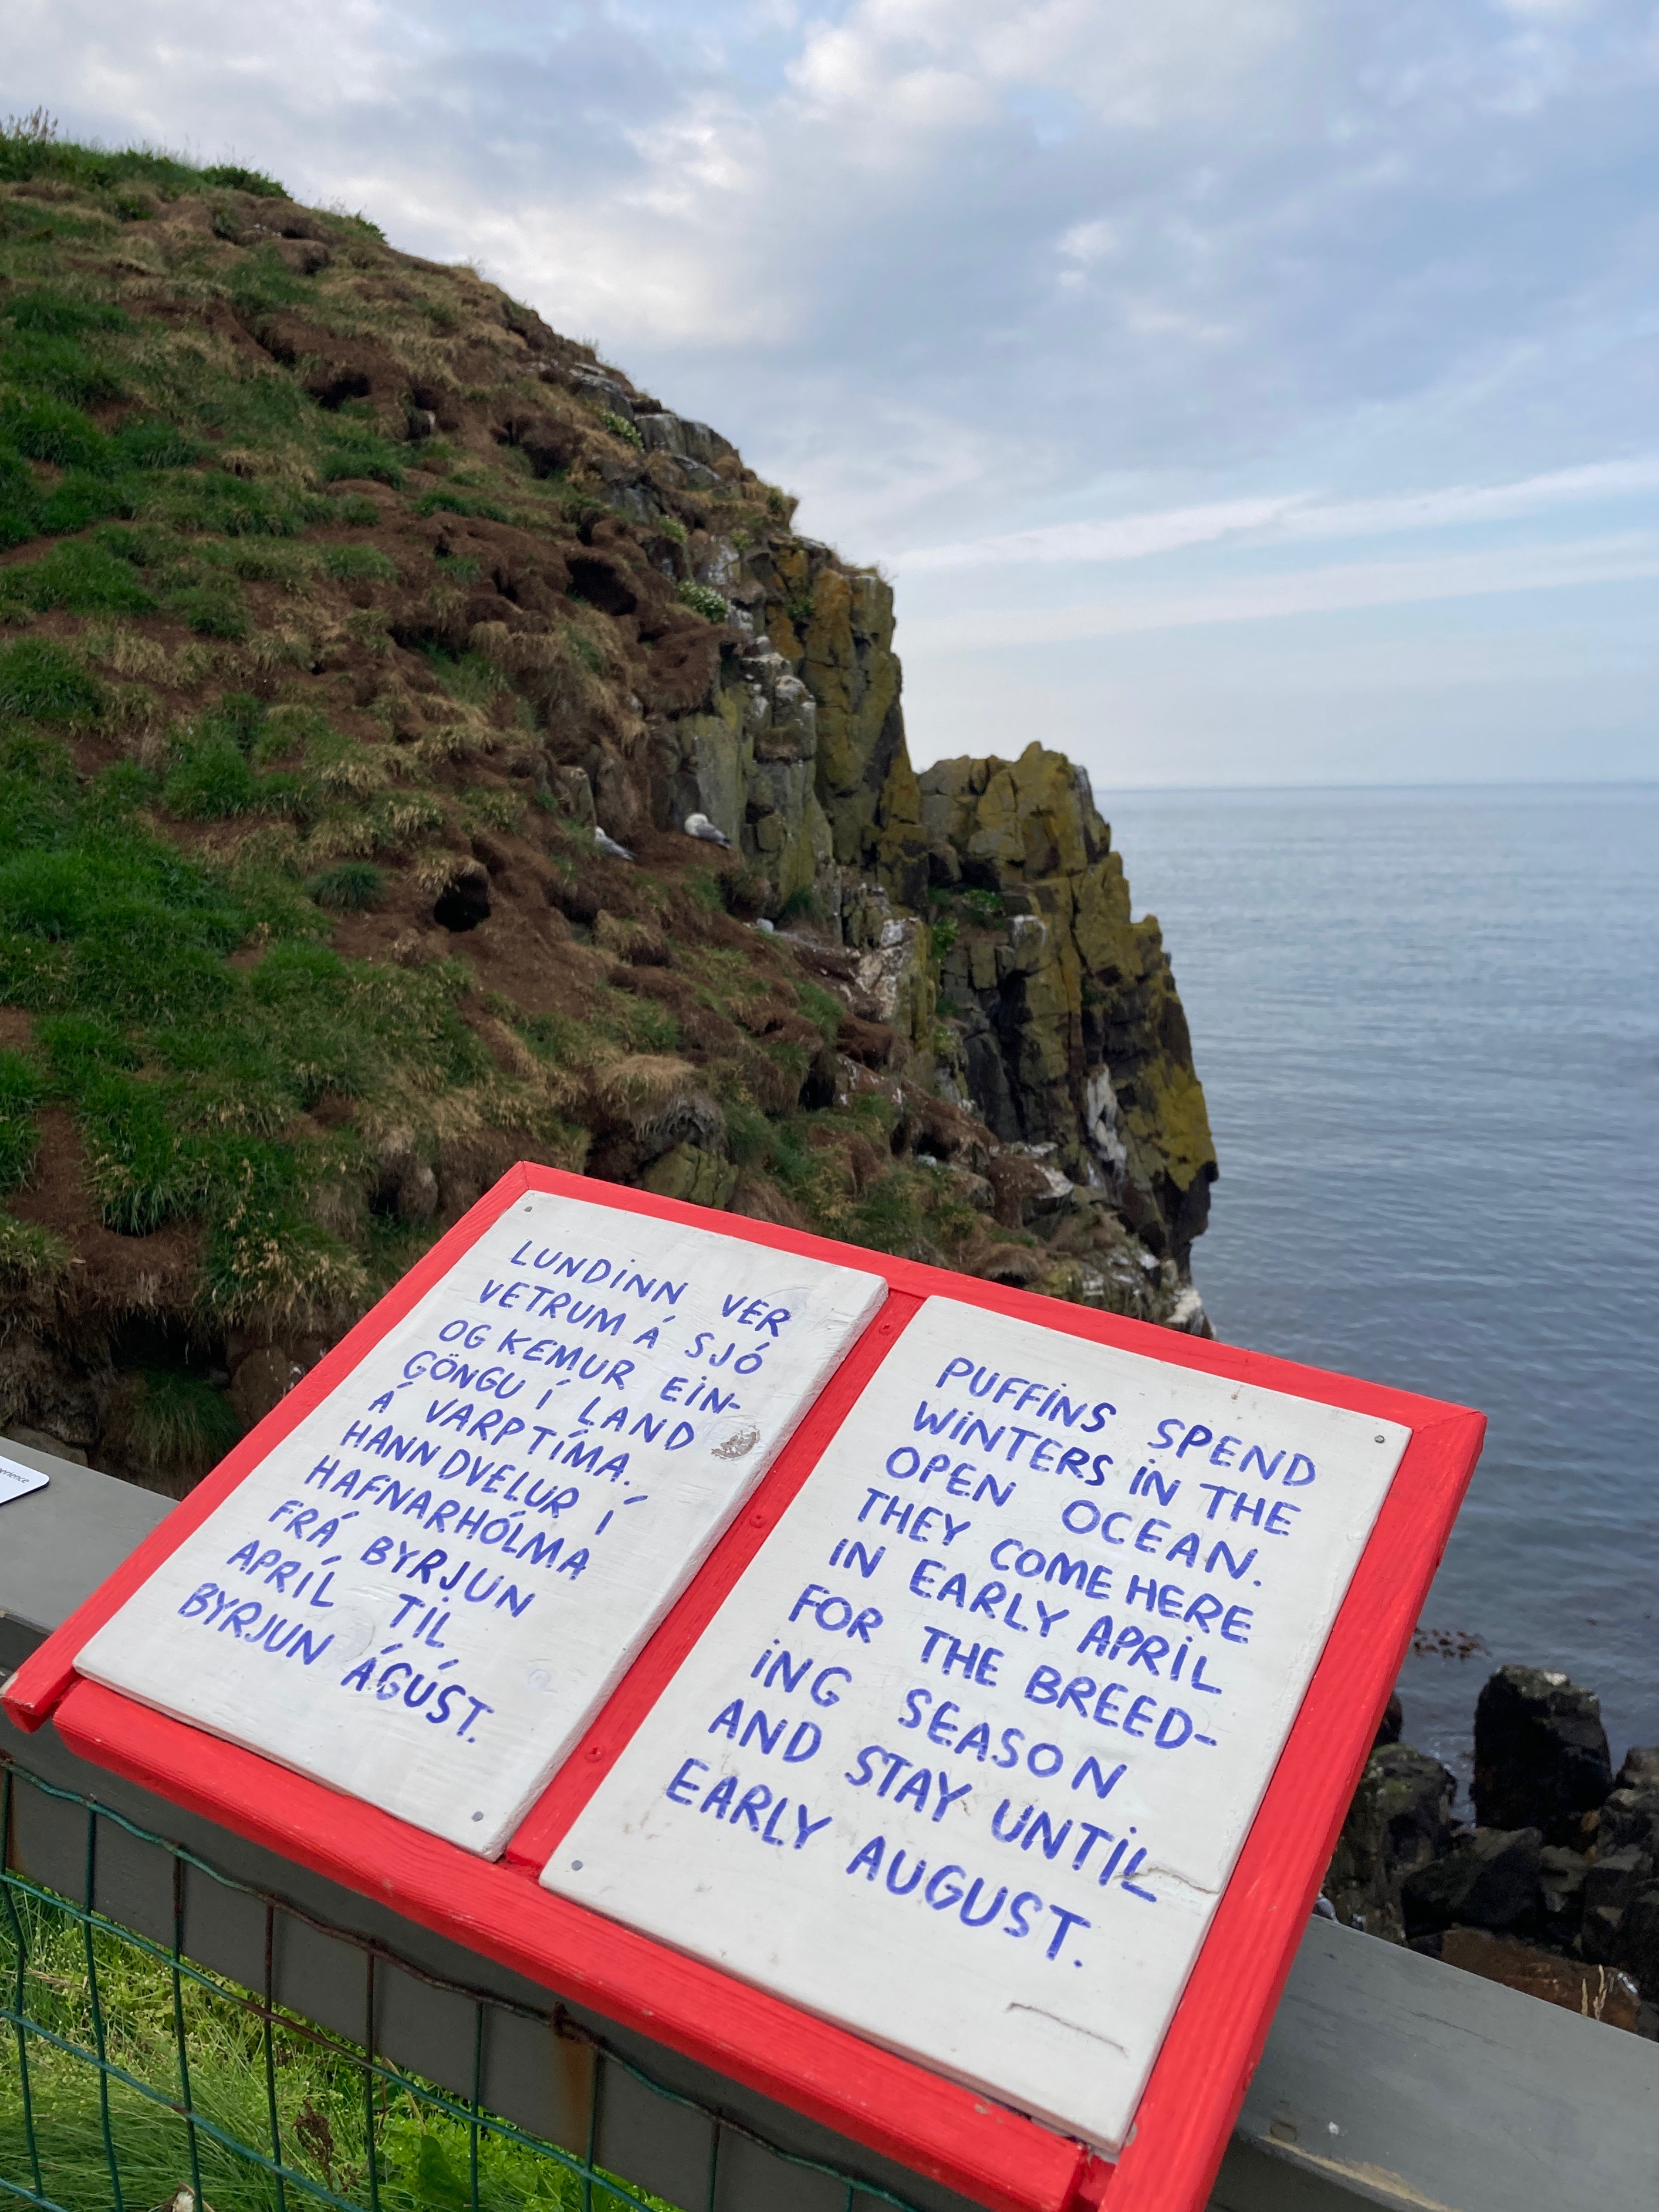 LUNDINN VER
VETRUM Á SJÓ
OG KEMUR EIN-
GÖNGU Í LAND
Á VARPTÍMA.
HANN DVELUR Í
HAFNARHÓLMA
FRÁ BYRJUN
APRÍL TIL
BYRJUN ÁGÚST.
PUFFINS SPEND
WINTERS IN THE
OPEN OCEAN.
THEY COME HERE
IN EARLY APRIL
FOR THE BREED-
ING SEASON
AND STAY UNTIL
EARLY AUGUST.